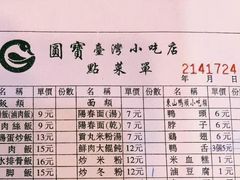 圓寶臺灣小吃店
點菜單
2141724
年 月 日
名稱 單價 份數 名稱 單價 份數 名稱 單價
飯類 麵類 東山鴨頭小吃類
飯(滷肉飯) 9元 陽春面(湯) 7元 鴨頭 6元
肉絲飯 9元 陽春面(乾) 7元 脖子
雞蛋炒飯 13元 貢丸米粉湯 7元 鴨舌
肉飯 15元 鮮肉大餛飩 12元 鴨肉 3個5元
水排骨飯 16元 炒米粉 12元 米血糕 1元
脚飯 15元 炒冬粉 12元 油豆腐 1元